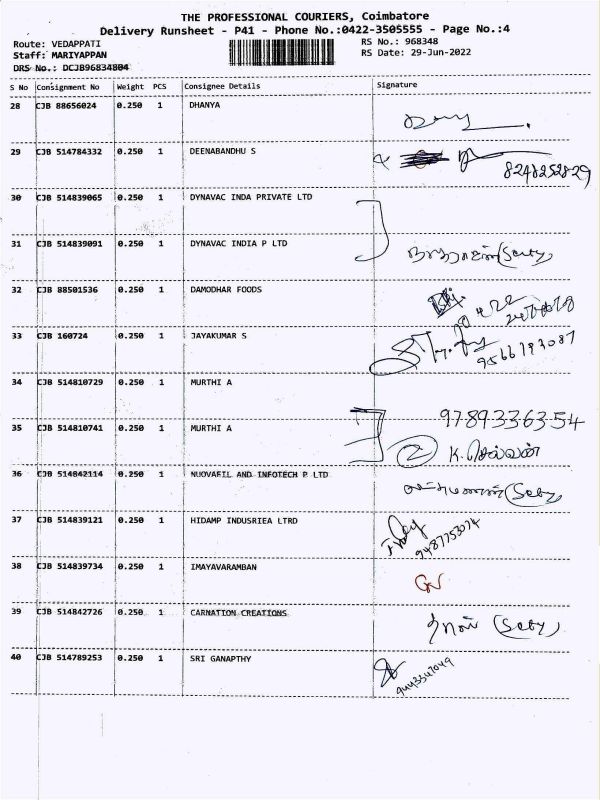 THE PROFESSIONAL COURIERS, Coimbatore
Delivery Runsheet - P41 - Phone No.:0422-3505555 - Page No.:4
Route: VEDAPPATI
RS No.: 968348
Staff: MARIYAPPAN
RS Date: 29-Jun-2022
DRS No.: DCJB96834804
S No Consignment No Weight PCS Consignee Details Signature
28 CJB 88656024 0.250 1 DHANYA
29 CJB 514784332 0.250 1 DEENABANDHU S
8248252829
30 CJB 514839065 0.250 1 DYNAVAC INDA PRIVATE LTD
31 CJB 514839091 0.250 1 DYNAVAC INDIA P LTD
32 CJB 88501536 0.250 1 DAMODHAR FOODS
33 CJB 160724 0.250 1 JAYAKUMAR S
9566193087
34 CJB 514810729 0.250 1 MURTHI A
9789336354
35 CJB 514810741 0.250 1 MURTHI A
2 K. செல்வன்
36 CJB 514842114 0.250 1 NUOVAFIL AND INFOTECH P LTD
37 CJB 514839121 0.250 1 HIDAMP INDUSRIEA LTRD
9487753074
38 CJB 514839734 0.250 1 IMAYAVARAMBAN
39 CJB 514842726 0.250 1 CARNATION CREATIONS
40 CJB 514789253 0.250 1 SRI GANAPTHY